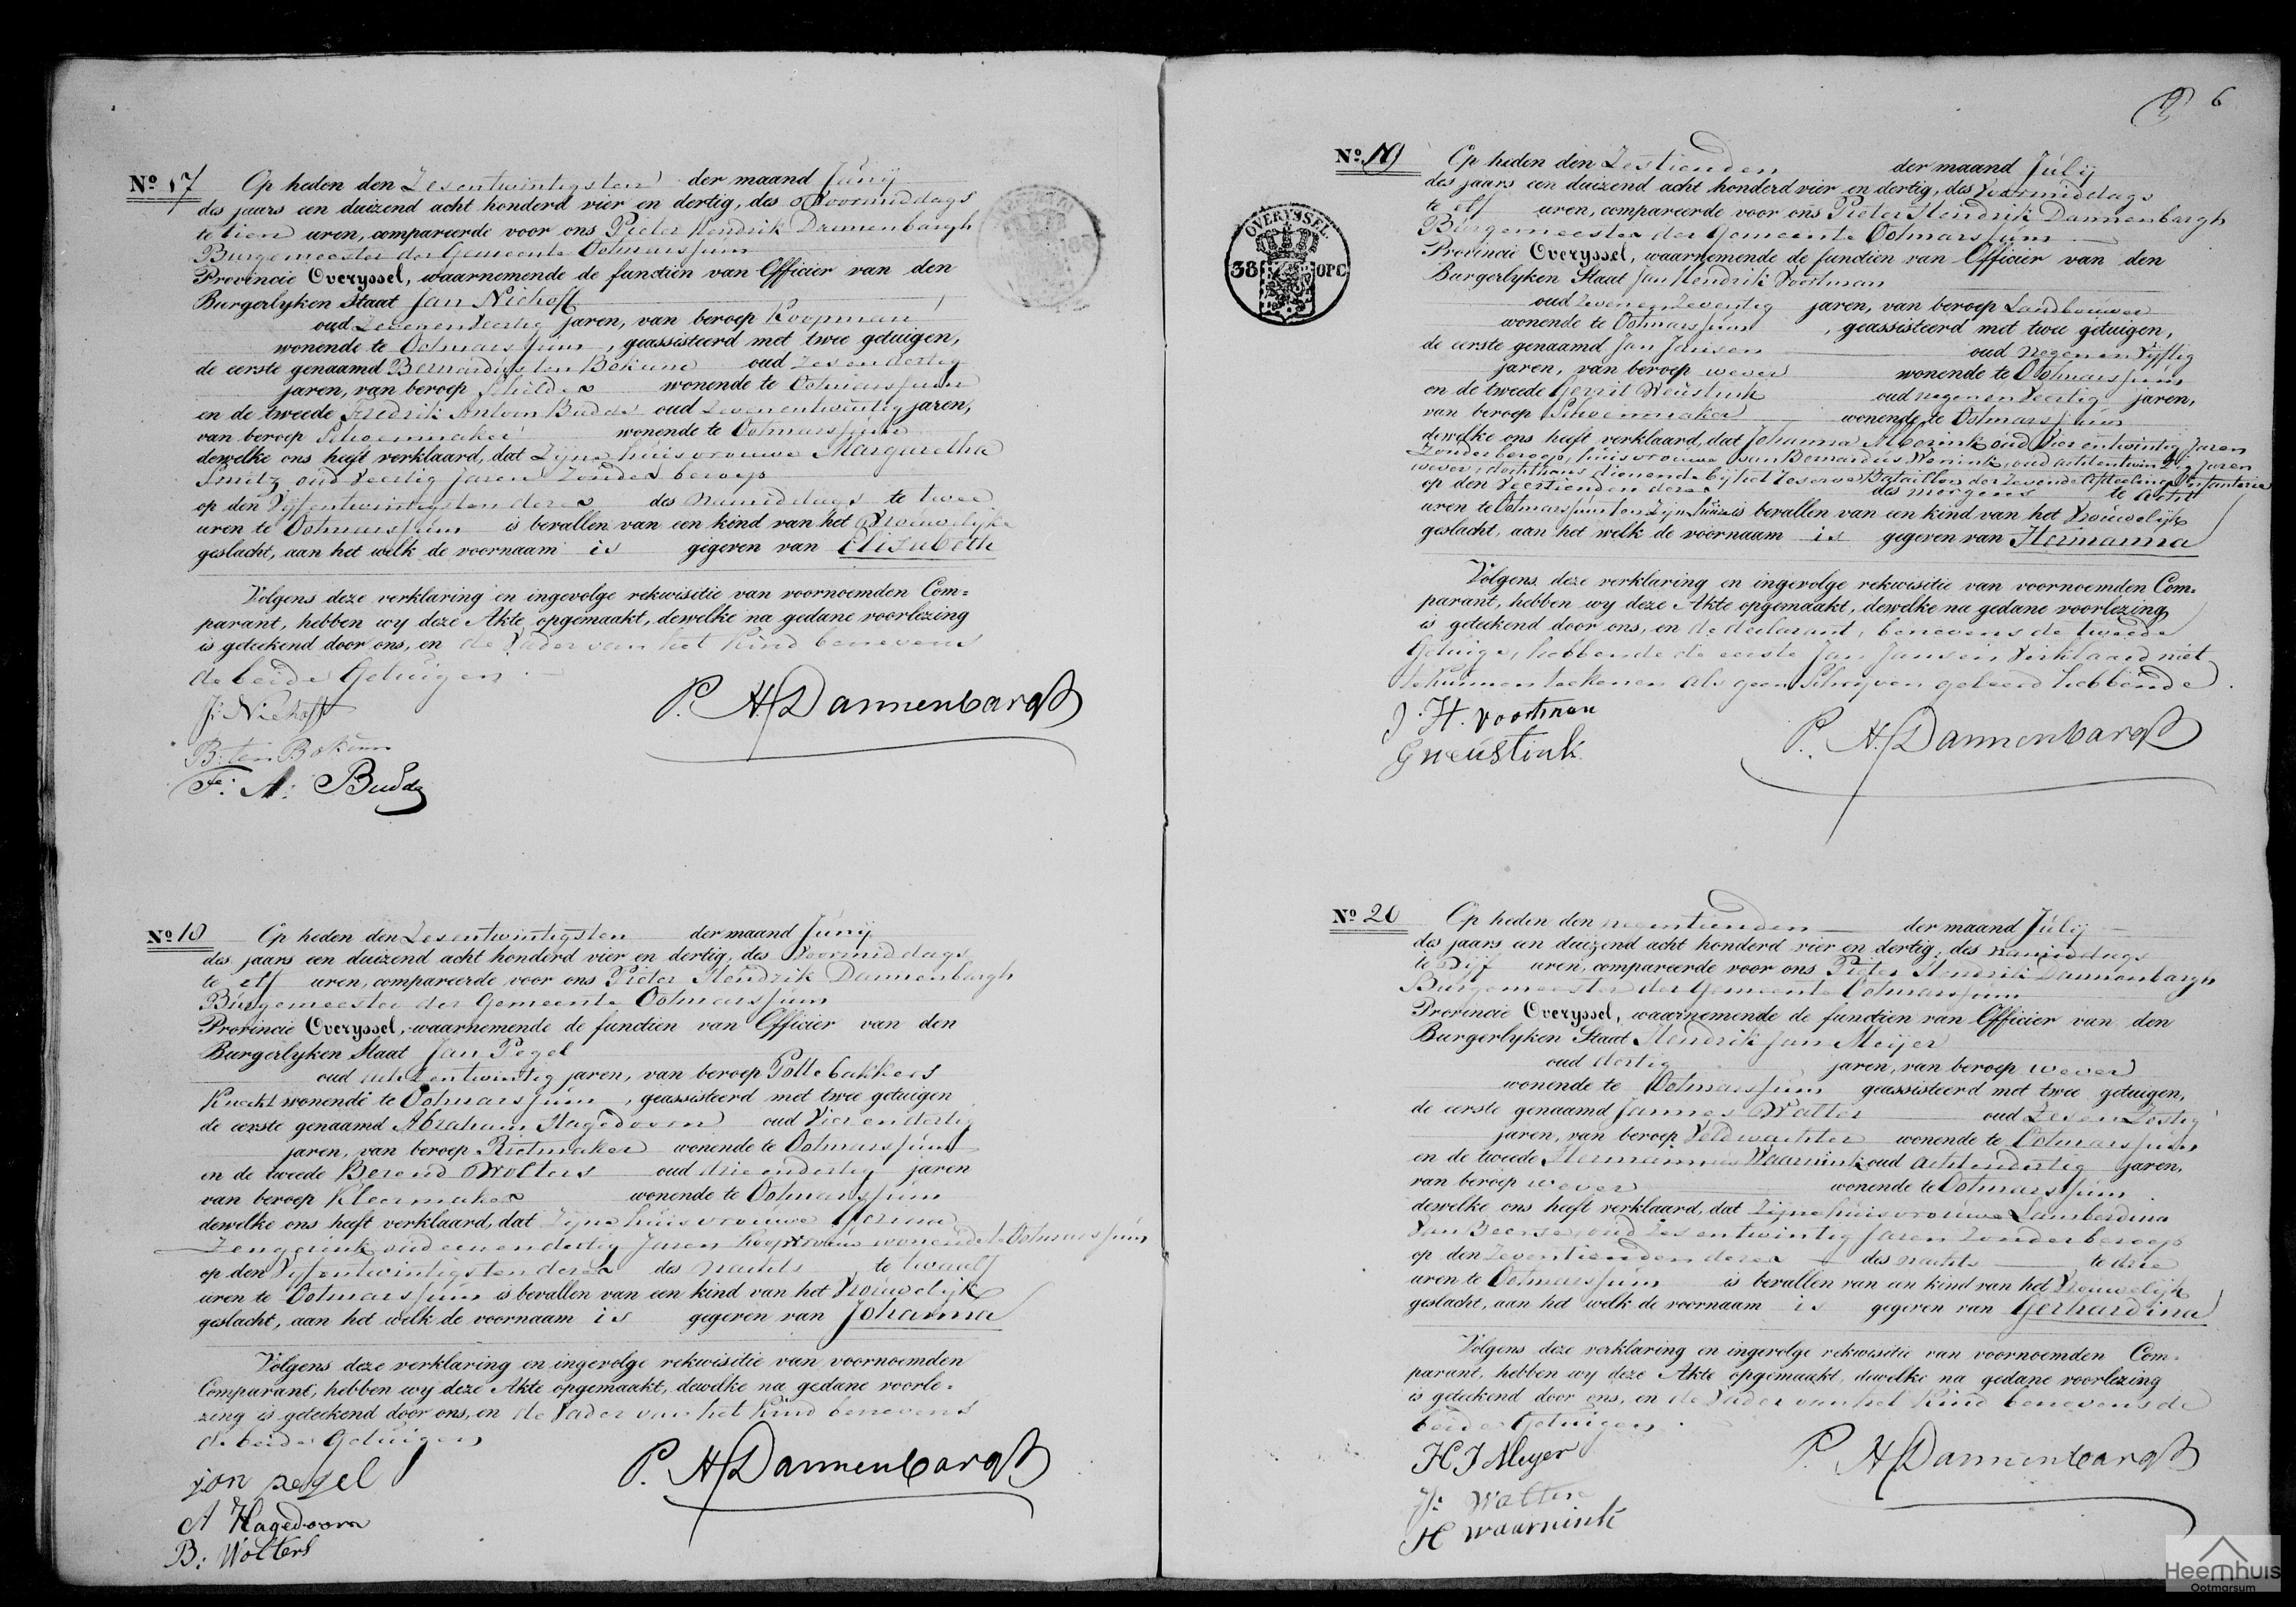 Nº 17 Op heden den Zesentwintigsten der maand Junij
des jaars een duizend acht honderd vier en dertig, des Voormiddags
te tien uren, compareerde voor ons Pieter Hendrik Dannenbargh
Burgemeester der Gemeente Ootmarssum
Provincie Overyssel, waarnemende de functien van Officier van den
Burgerlyken Staat Jan Niehoff
oud Zevenenveertig jaren, van beroep Koopman
wonende te Ootmarssum, geassisteerd met twee getuigen,
de eerste genaamd Bernardus ten Bokum oud Zesendertig
jaren, van beroep Schilder wonende te Ootmarssum
en de tweede Fredrik Antoon Budde oud Zevenentwintig jaren,
van beroep Schoenmaker wonende te Ootmarssum
dewelke ons heeft verklaard, dat Zijne huisvrouwe Margaretha
Smitz oud Veertig Jaren Zonder beroep
op den Vyfentwintigsten dezer des namiddags te twee
uren te Ootmarssum is bevallen van een kind van het Vrouwelijke
geslacht, aan het welk de voornaam is gegeven van Elisabeth
Volgens deze verklaring en ingevolge rekwisitie van voornoemden Com=
parant, hebben wy deze Akte opgemaakt, dewelke na gedane voorlezing
is geteekend door ons, en de Vader van het Kind benevens
de beide Getuigen.
J: Niehoff P. H. Dannenbargh
B: ten Bokum
F: A: Budde
Nº 18 Op heden den Zesentwintigsten der maand Junij
des jaars een duizend acht honderd vier en dertig, des Voormiddags
te elf uren, compareerde voor ons Pieter Hendrik Dannenbargh
Burgemeester der Gemeente Ootmarssum
Provincie Overyssel, waarnemende de functien van Officier van den
Burgerlyken Staat Jan Pegel
oud achtentwintig jaren, van beroep Pottebakkers
Knecht wonende te Ootmarssum, geassisteerd met twee getuigen
de eerste genaamd Abraham Hagedoorn oud Vierendertig
jaren, van beroep Rietmaker wonende te Ootmarssum
en de tweede Berend Wolters oud drieendertig jaren
van beroep Kleermaker wonende te Ootmarssum
dewelke ons heeft verklaard, dat Zijne huisvrouwe
Zengerink oud eenendertig Jaren Koopvrouw wonende te Ootmarssum
op den Vyfentwintigsten dezer des nachts te twaalf
uren te Ootmarssum is bevallen van een kind van het Vrouwelijk
geslacht, aan het welk de voornaam is gegeven van Johanna
Volgens deze verklaring en ingevolge rekwisitie van voornoemden
Comparant, hebben wy deze Akte opgemaakt, dewelke na gedane voorle=
zing is geteekend door ons, en de Vader van het Kind benevens
de beide Getuigen
jan pegel P. H. Dannenbargh
A Hagedoorn
B: Wolters
6
Nº 19 Op heden den Zestienden der maand Julij
des jaars een duizend acht honderd vier en dertig, des Voormiddags
te elf uren, compareerde voor ons Pieter Hendrik Dannenbargh
Burgemeester der Gemeente Ootmarssum
Provincie Overyssel, waarnemende de functien van Officier van den
Burgerlyken Staat Jan Hendrik Voortman
oud Zevenenzeventig jaren, van beroep Landbouwer
wonende te Ootmarssum, geassisteerd met twee getuigen,
de eerste genaamd Jan Jansen oud negenenvyftig
jaren, van beroep wever wonende te Ootmarssum
en de tweede Gerrit Weustink oud negenenveertig jaren,
van beroep Schoenmaker wonende te Ootmarssum
dewelke ons heeft verklaard, dat Johanna Alberink oud Vierentwintig Jaren
Zonder beroep, huisvrouwe van Bernardus Wenink, oud achtentwintig Jaren
wever, dochthans dienende by het reserve Bataillon der Zevende Afdeeling Infanterie
op den Veertienden dezer des morgens te acht
uren te Ootmarssum ten Zijn huize is bevallen van een kind van het Vrouwelijk
geslacht, aan het welk de voornaam is gegeven van Hermanna
Volgens deze verklaring en ingevolge rekwisitie van voornoemden Com=
parant, hebben wy deze Akte opgemaakt, dewelke na gedane voorlezing
is geteekend door ons, en de declarant, benevens de tweede
Getuige, hebbende de eerste Jan Jansen Verklaard niet
te kunnen teekenen als geen Schryven geleerd hebbende.
J. H. Voortman P. H. Dannenbargh
G weustink
OVERYSSEL.
38 OPC
Nº 20 Op heden den negentienden der maand Julij
des jaars een duizend acht honderd vier en dertig, des namiddags
te Vijf uren, compareerde voor ons Pieter Hendrik Dannenbargh
Burgemeester der Gemeente Ootmarssum
Provincie Overyssel, waarnemende de functien van Officier van den
Burgerlyken Staat Hendrik Jan Meijer
oud dertig jaren, van beroep wever
wonende te Ootmarssum geassisteerd met twee getuigen,
de eerste genaamd Jannes Walter oud Zesenzestig
jaren, van beroep Veldwachter wonende te Ootmarssum
en de tweede Hermannus Waarnink oud achtendertig jaren,
van beroep wever wonende te Ootmarssum
dewelke ons heeft verklaard, dat Zijne huisvrouwe Lamberdina
van Beerse, oud Zesentwintig Jaren Zonder beroep
op den Zeventienden dezer des nachts te drie
uren te Ootmarssum is bevallen van een kind van het Vrouwelijk
geslacht, aan het welk de voornaam is gegeven van Gerhardina
Volgens deze verklaring en ingevolge rekwisitie van voornoemden Com=
parant, hebben wy deze Akte opgemaakt, dewelke na gedane voorlezing
is geteekend door ons, en de Vader van het Kind benevens de
beide Getuigen.
H J Meyer P. H. Dannenbargh
J: Walter
H waarnink
Heemhuis
Ootmarsum